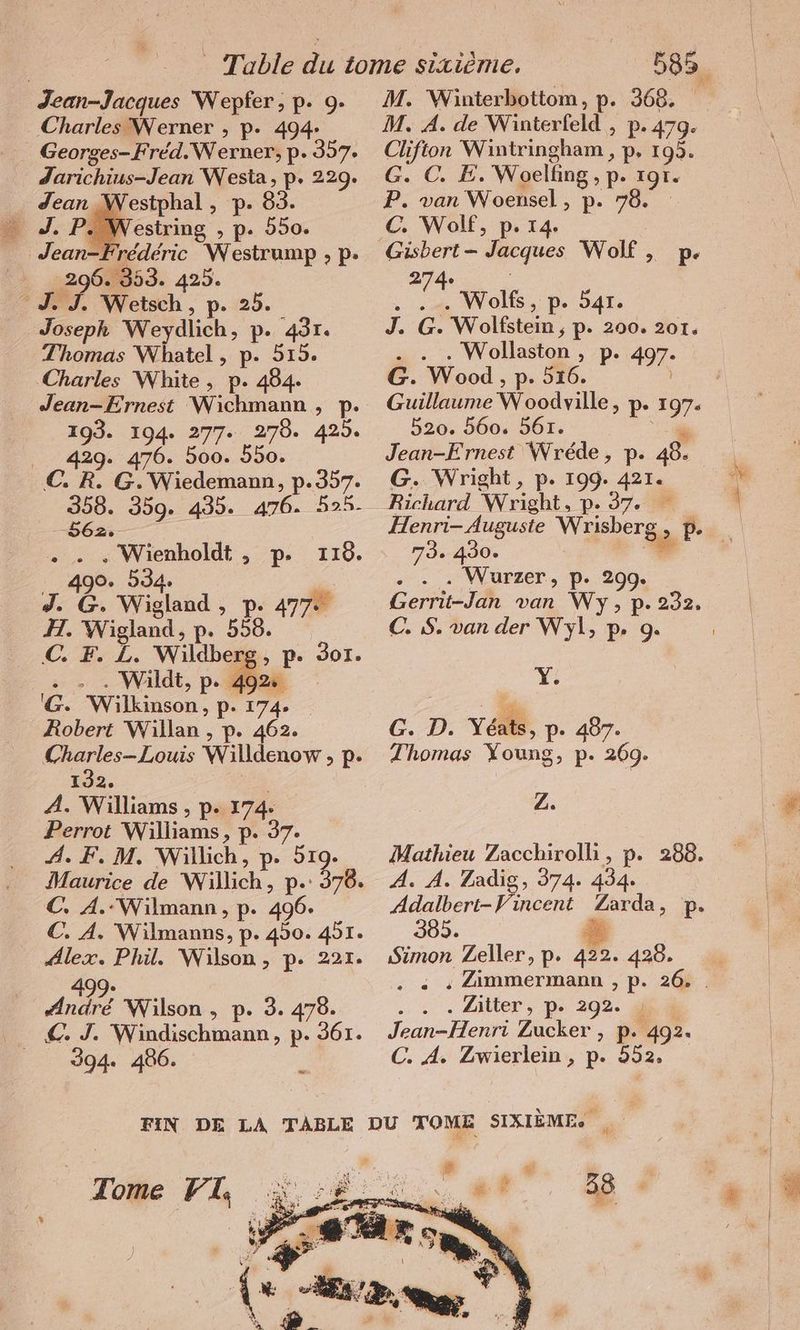 Table du tome sixième. 585
Jean-Jacques Wepfer, p. 9.
Charles Werner , p. 494.
Georges-Fréd. Werner, p. 357.
Jarichius-Jean Westa, p. 229.
Jean Westphal , p. 83.
J. P. Westring , p. 550.
Jean-Frédéric Westrump , p.
296. 353. 425.
J. J. Wetsch, p. 25.
Joseph Weydlich, p. 431.
Thomas Whatel , p. 515.
Charles White , p. 484.
Jean-Ernest Wichmann , p.
193. 194. 277. 278. 425.
429. 476. 500. 550.
C. R. G. Wiedemann, p. 357.
358. 359. 435. 476. 525.
562.
. . . Wienholdt , p. 118.
490. 534.
J. G. Wigland , p. 477.
H. Wigland, p. 558.
C. F. L. Wildberg, p. 301.
. . . Wildt, p. 492.
G. Wilkinson, p. 174.
Robert Willan , p. 462.
Charles-Louis Willdenow , p.
132.
A. Williams , p. 174.
Perrot Williams, p. 37.
A. F. M. Willich, p. 519.
Maurice de Willich, p. 378.
C. A. Wilmann, p. 496.
C. A. Wilmanns, p. 450. 451.
Alex. Phil. Wilson, p. 221.
499.
André Wilson , p. 3. 478.
C. J. Windischmann, p. 361.
394. 486.
M. Winterbottom, p. 368.
M. A. de Winterfeld , p. 479.
Clifton Wintringham, p. 195.
G. C. E. Woelfing, p. 191.
P. van Woensel , p. 78.
C. Wolf, p. 14.
Gisbert-Jacques Wolf , p.
274.
. . . Wolfs, p. 541.
J. G. Wolfstein, p. 200. 201.
. . . Wollaston , p. 497.
G. Wood, p. 516.
Guillaume Woodville, p. 197.
520. 560. 561.
Jean-Ernest Wréde, p. 48.
G. Wright, p. 199. 421.
Richard Wright, p. 37.
Henri-Auguste Wrisberg , p.
73. 430.
. . . Wurzer, p. 299.
Gerrit-Jan van Wy, p. 232.
C. S. van der Wyl, p. 9.
Y.
G. D. Yéats, p. 487.
Thomas Young, p. 269.
Z.
Mathieu Zacchirolli, p. 288.
A. A. Zadig, 374. 434.
Adalbert-Vincent Zarda, p.
385.
Simon Zeller, p. 422. 428.
. . . Zimmermann , p. 26.
. . . Zitter, p. 292.
Jean-Henri Zucker, p. 492.
C. A. Zwierlein, p. 552.
FIN DE LA TABLE DU TOME SIXIÈME.
Tome VI. 38